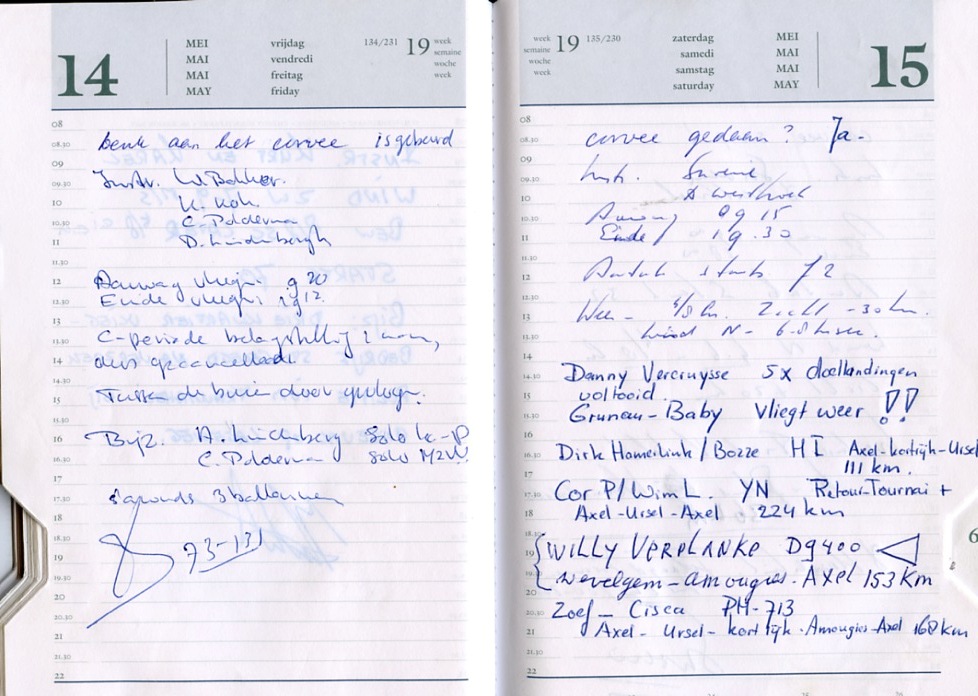 14
MEI vrijdag 134/231 19 week
MAI vendredi semaine
MAI freitag woche
MAY friday week
08
08.30 denk aan het corvee is gebeurd
09
09.30 Instr. W. Bakker.
10 K. Kok.
10.30 C. Polderma
11 D. Lindenbergh
11.30
12 Aanvang vliegen 9 20
12.30 Einde vliegen 1912
13
13.30 C-periode belangstelling 2 man,
14 dus geannuleerd.
14.30
15 Tussen de buien door gevlogen.
15.30
16 Bijz. A. Lindenberg Solo K-P
16.30 C. Polderma Solo M2W
17
17.30 s'avonds 3 ballonnen
18
18.30
19 93-131
19.30
20
20.30
21
21.30
22
week 19 135/230 zaterdag MEI
semaine samedi MAI
woche samstag MAI
week saturday MAY
15
08
08.30 corvee gedaan? Ja.
09
09.30 Instr.
10
10.30 Aanvang 09 15
11 Einde 19.30
11.30
12 Aantal starts 72
12.30
13 Zicht -30 km.
13.30 wind N-
14
14.30 Danny Vercruysse 5x doellandingen
15 voltooid.
15.30 Grunau-Baby vliegt weer !!
16
16.30 Dirk Homerlink / Bozze H I Axel-kortrijk-Ursel
17 111 km.
17.30 Cor P/Wim L. YN Retour-Tournai +
18 Axel-Ursel-Axel 224 km
18.30
19 WILLY VERPLANKE DG400
19.30 Wevelgem-amougies. Axel 153 Km
20
20.30 Zoef - Cisca PH-713
21 Axel - Ursel - kortrijk. Amougies-Axel 160 km
21.30
22
6